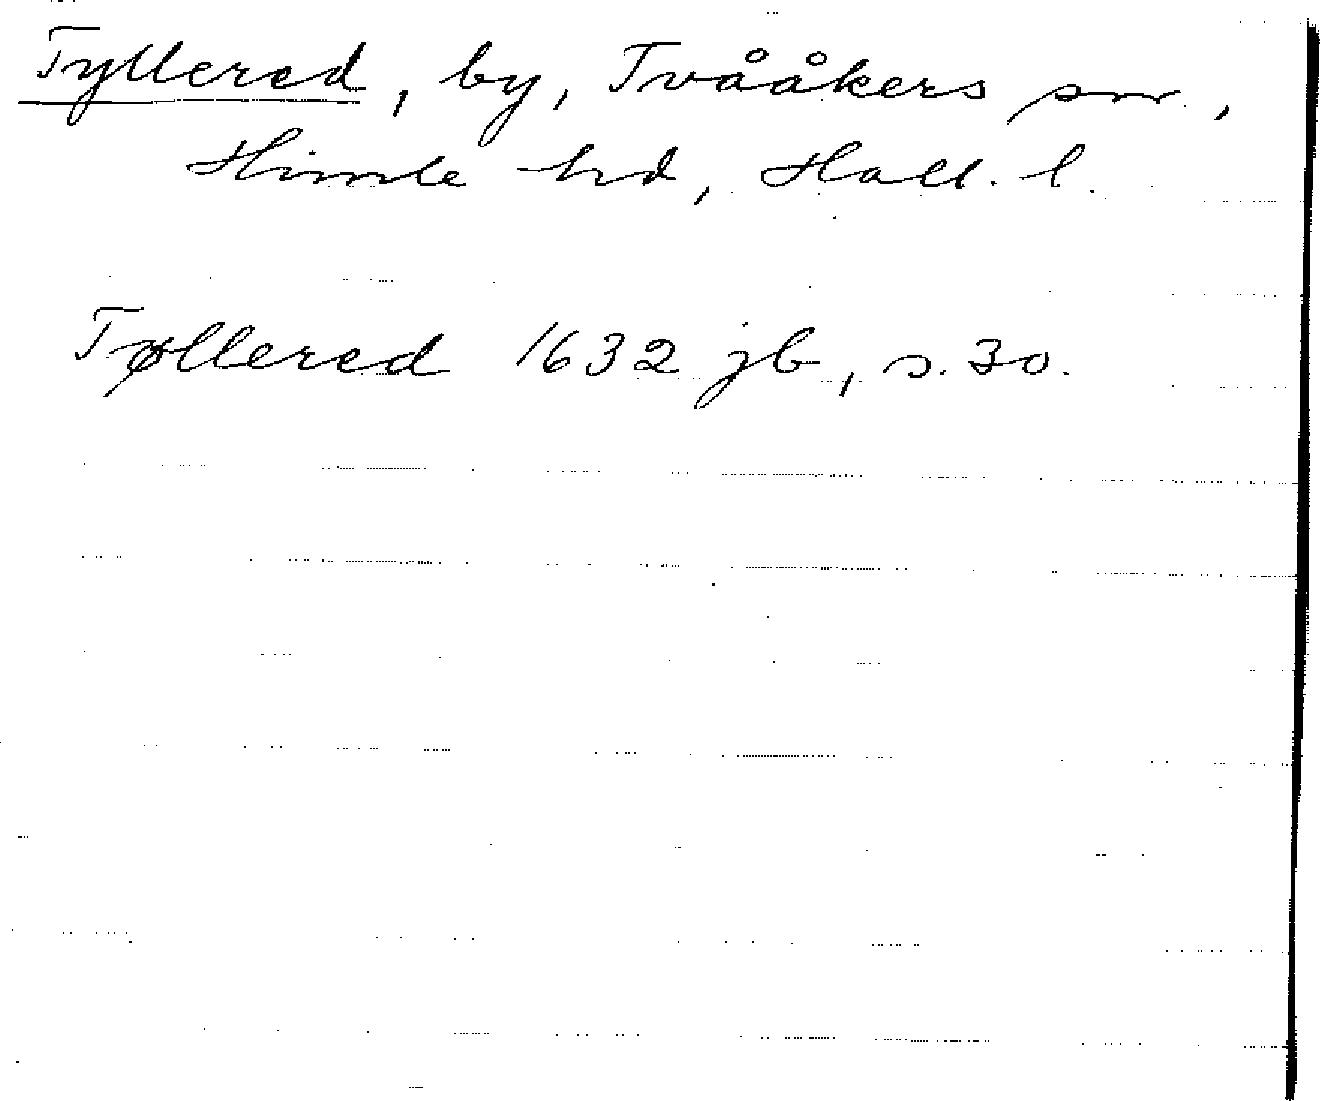 Tyllered, by, Tvååkers sn.,
Himle hd, Hall. l.
Tøllered 1632 jb, s. 30.